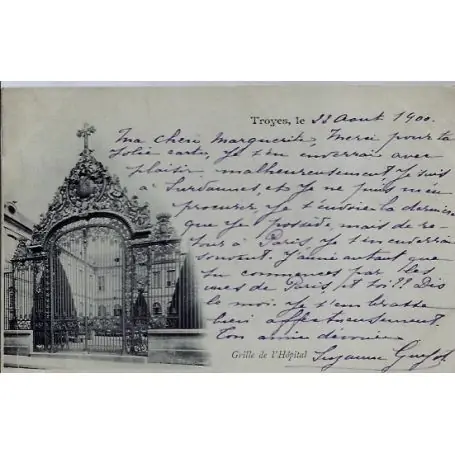 Troyes, le 22 Août 1900.
Ma chère Marguerite, Merci pour ta
jolie carte, je t'en enverrai avec
plaisir, malheureusement je suis
à et je ne puis m'en
procurer, je t'envoie la dernière
que je possède, mais de re-
tour à Paris je t'en enverrai
souvent. J'aime autant que
tu commences par les
vues de Paris, et toi?? Dis
le moi. Je t'embrasse
bien affectueusement.
Ton amie dévouée
Suzanne
Grille de l'Hôpital